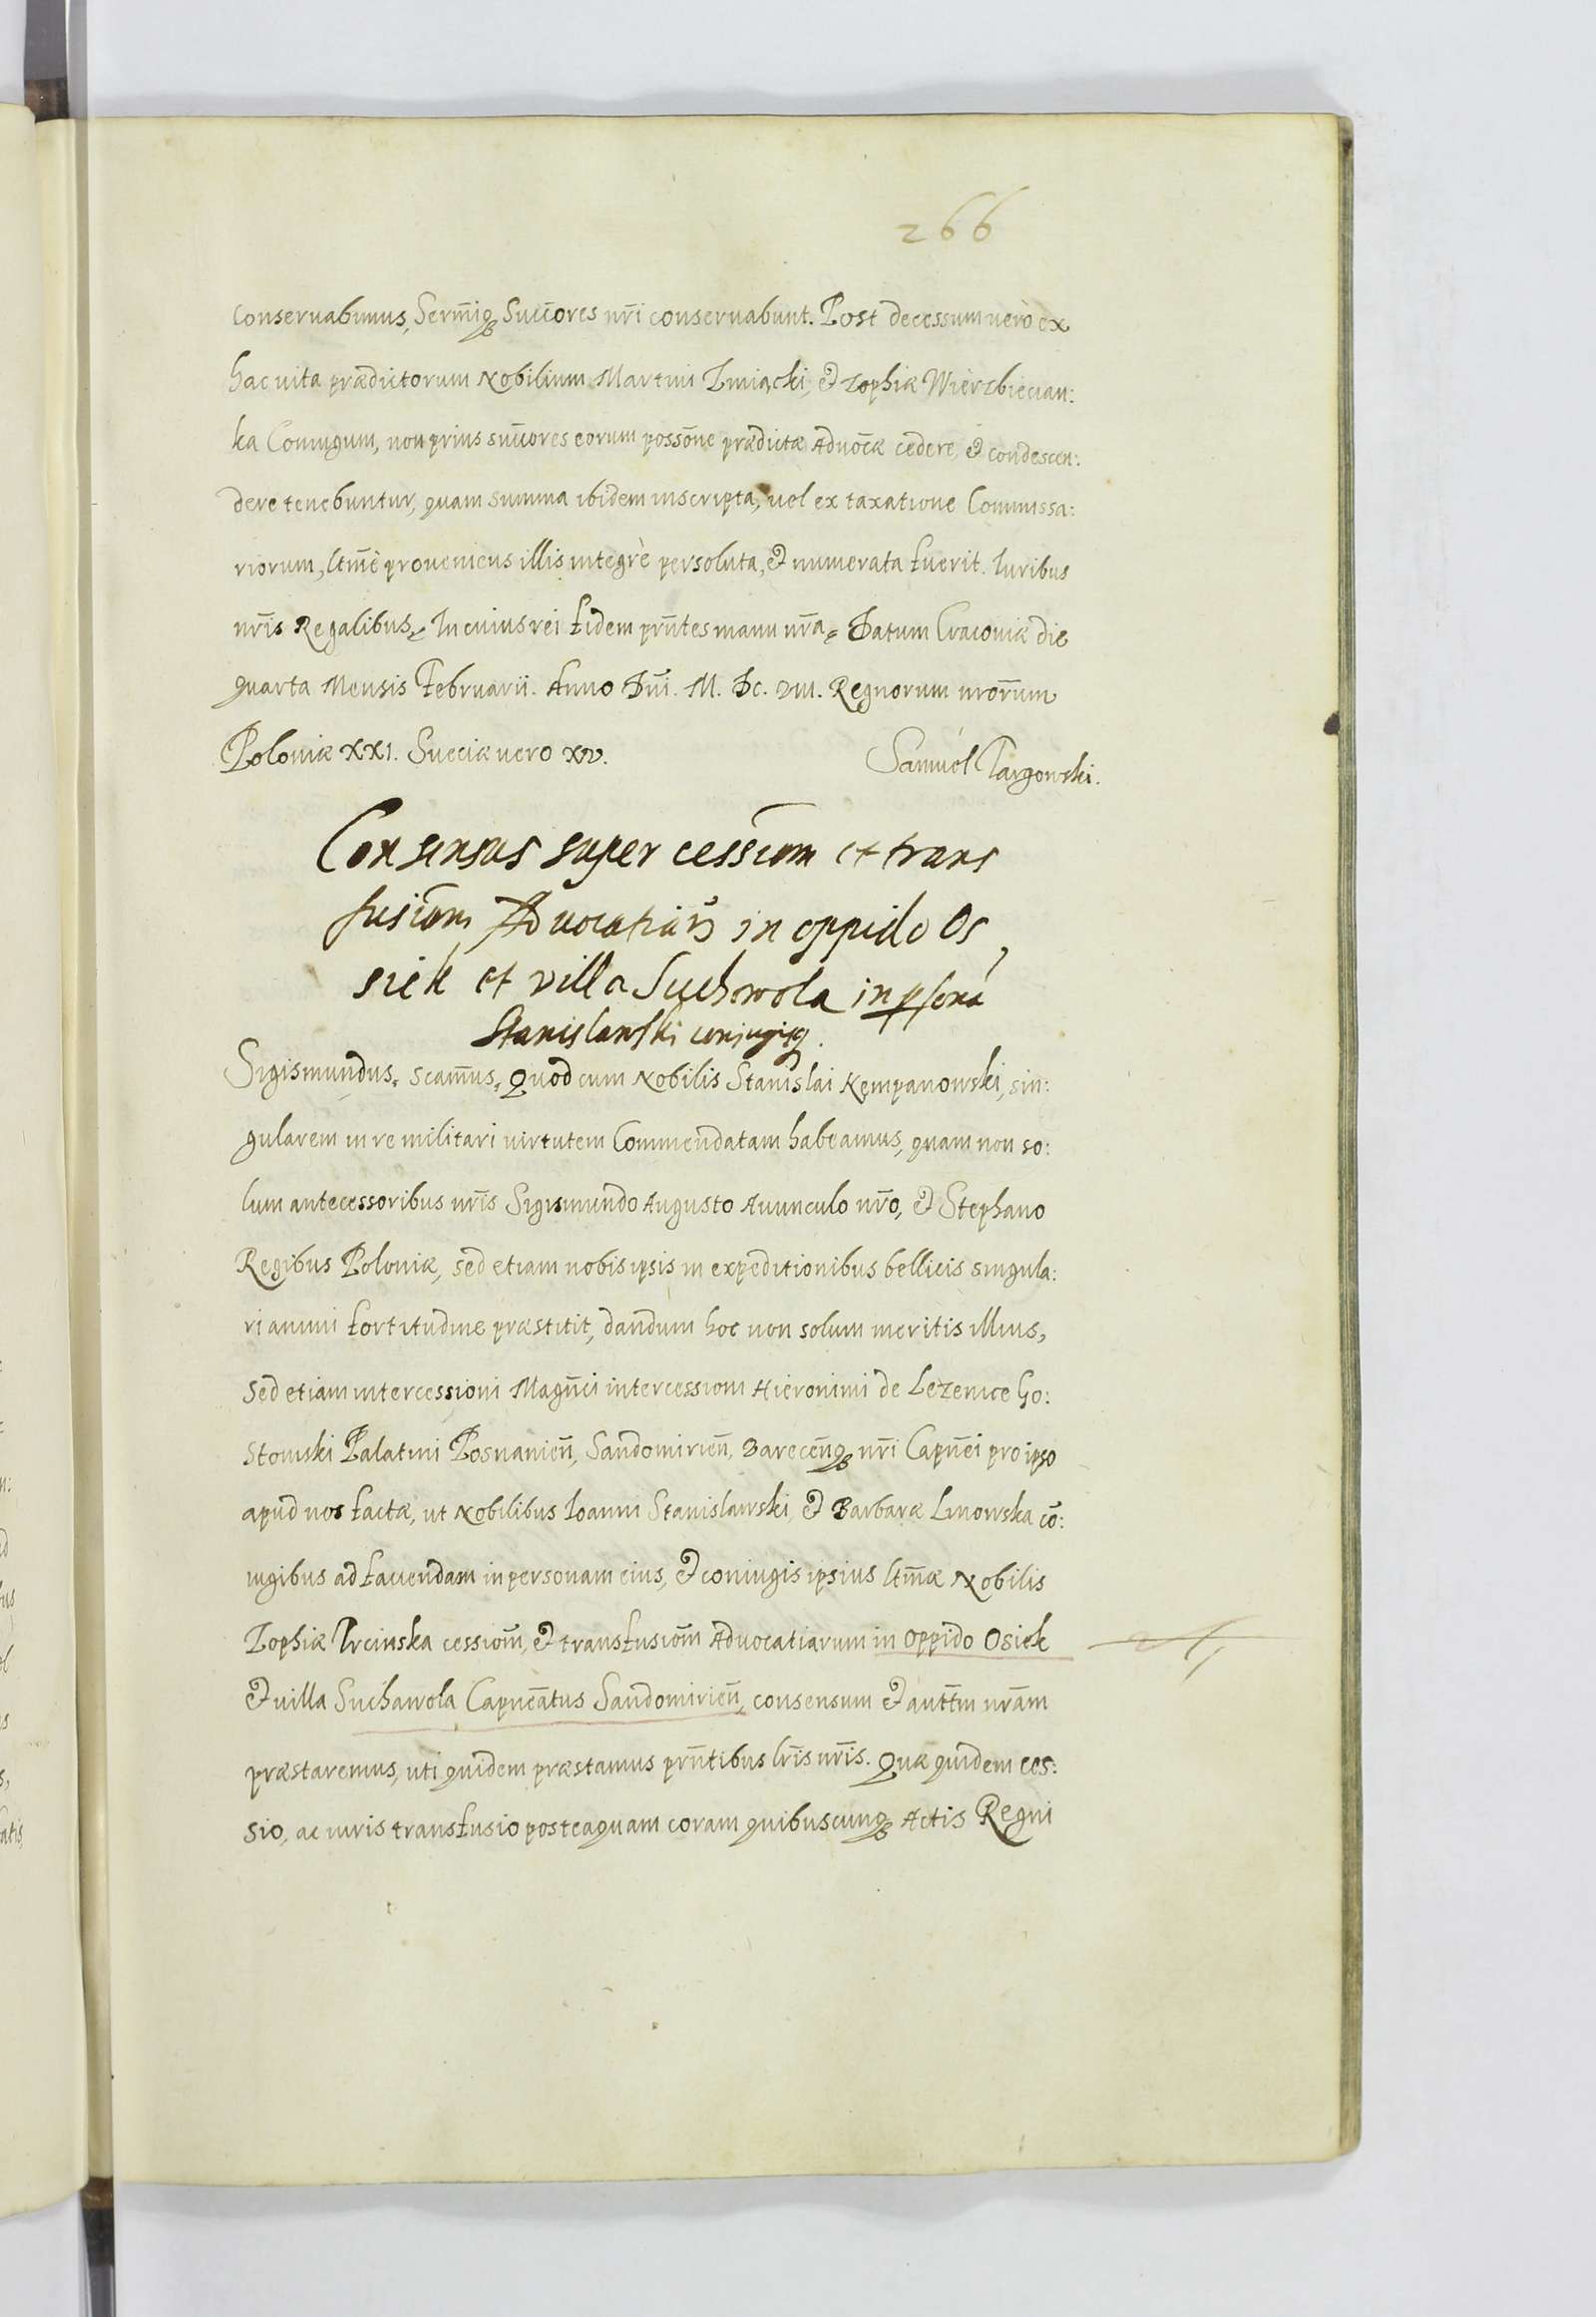 266
conseruabimus, Serm̄iq₃ Succ̄ores nr̄i conseruabunt. Post decessum uerò ex
hac uita prædictorum Nobilium Martini Zmiącki, & Zophiæ Wierzbieczian:
ka Coniugum, non prius succ̄ores eorum possōne prædictæ Aduōcæ cedere, & condescen:
dere tenebuntur, quam summa ibidem inscripta, uel ex taxatione Commissa:
riorum, ltm̄è proueniens illis integrè persoluta, & numerata fuerit. Iuribus
nr̄is Regalibus. In cuius rei fidem prn̄tes manu nr̄a. Datum Cracouiæ die
quarta Mensis Februarii. Anno Dn̄i. M. Dc. viii. Regnorum nrōrum
Poloniæ XXI. Sueciæ uero XV.
Samuel Targowski.
Consensus super cessiom̄ et trans
fusiom̄ Aduocatiar̄ in oppido Os
siek et villa Suchowola in psona
Stanislawski coniugisq₃.
Sigismundus. Scam̄us. Quod cum Nobilis Stanislai Kempanowski, sin:
gularem in re militari uirtutem Commendatam habeamus, quam non so:
lum antecessoribus nr̄is Sigismundo Augusto Auunculo nr̄o, & Stephano
Regibus Poloniæ, sed etiam nobis ipsis in expeditionibus bellicis singula:
ri animi fortitudine præstitit, dandum hoc non solum meritis illius,
sed etiam intercessioni Magn̄ci intercessioni Hieronimi de Lezenice Go:
stomski Palatini Posnanien̄, Sandomirien̄, Barecen̄q₃ nr̄i Capn̄ei pro ipso
apud nos factæ, ut Nobilibus Ioanni Stanislawski, & Barbaræ Lnowska cō:
iugibus ad faciendam in personam eius, & coniugis ipsius ltm̄æ Nobilis
Zophiæ cessiom̄, & transfusiom̄ Aduocatiarum in oppido Osiek
& uilla Suchawola Capnēatus Sandomirien̄, consensum & autt̄m nrām
præstaremus, uti quidem præstamus prn̄tibus lr̄is nr̄is. Quæ quidem ces:
sio, ac iuris transfusio posteaquam coram quibuscunq₃ Actis Regni